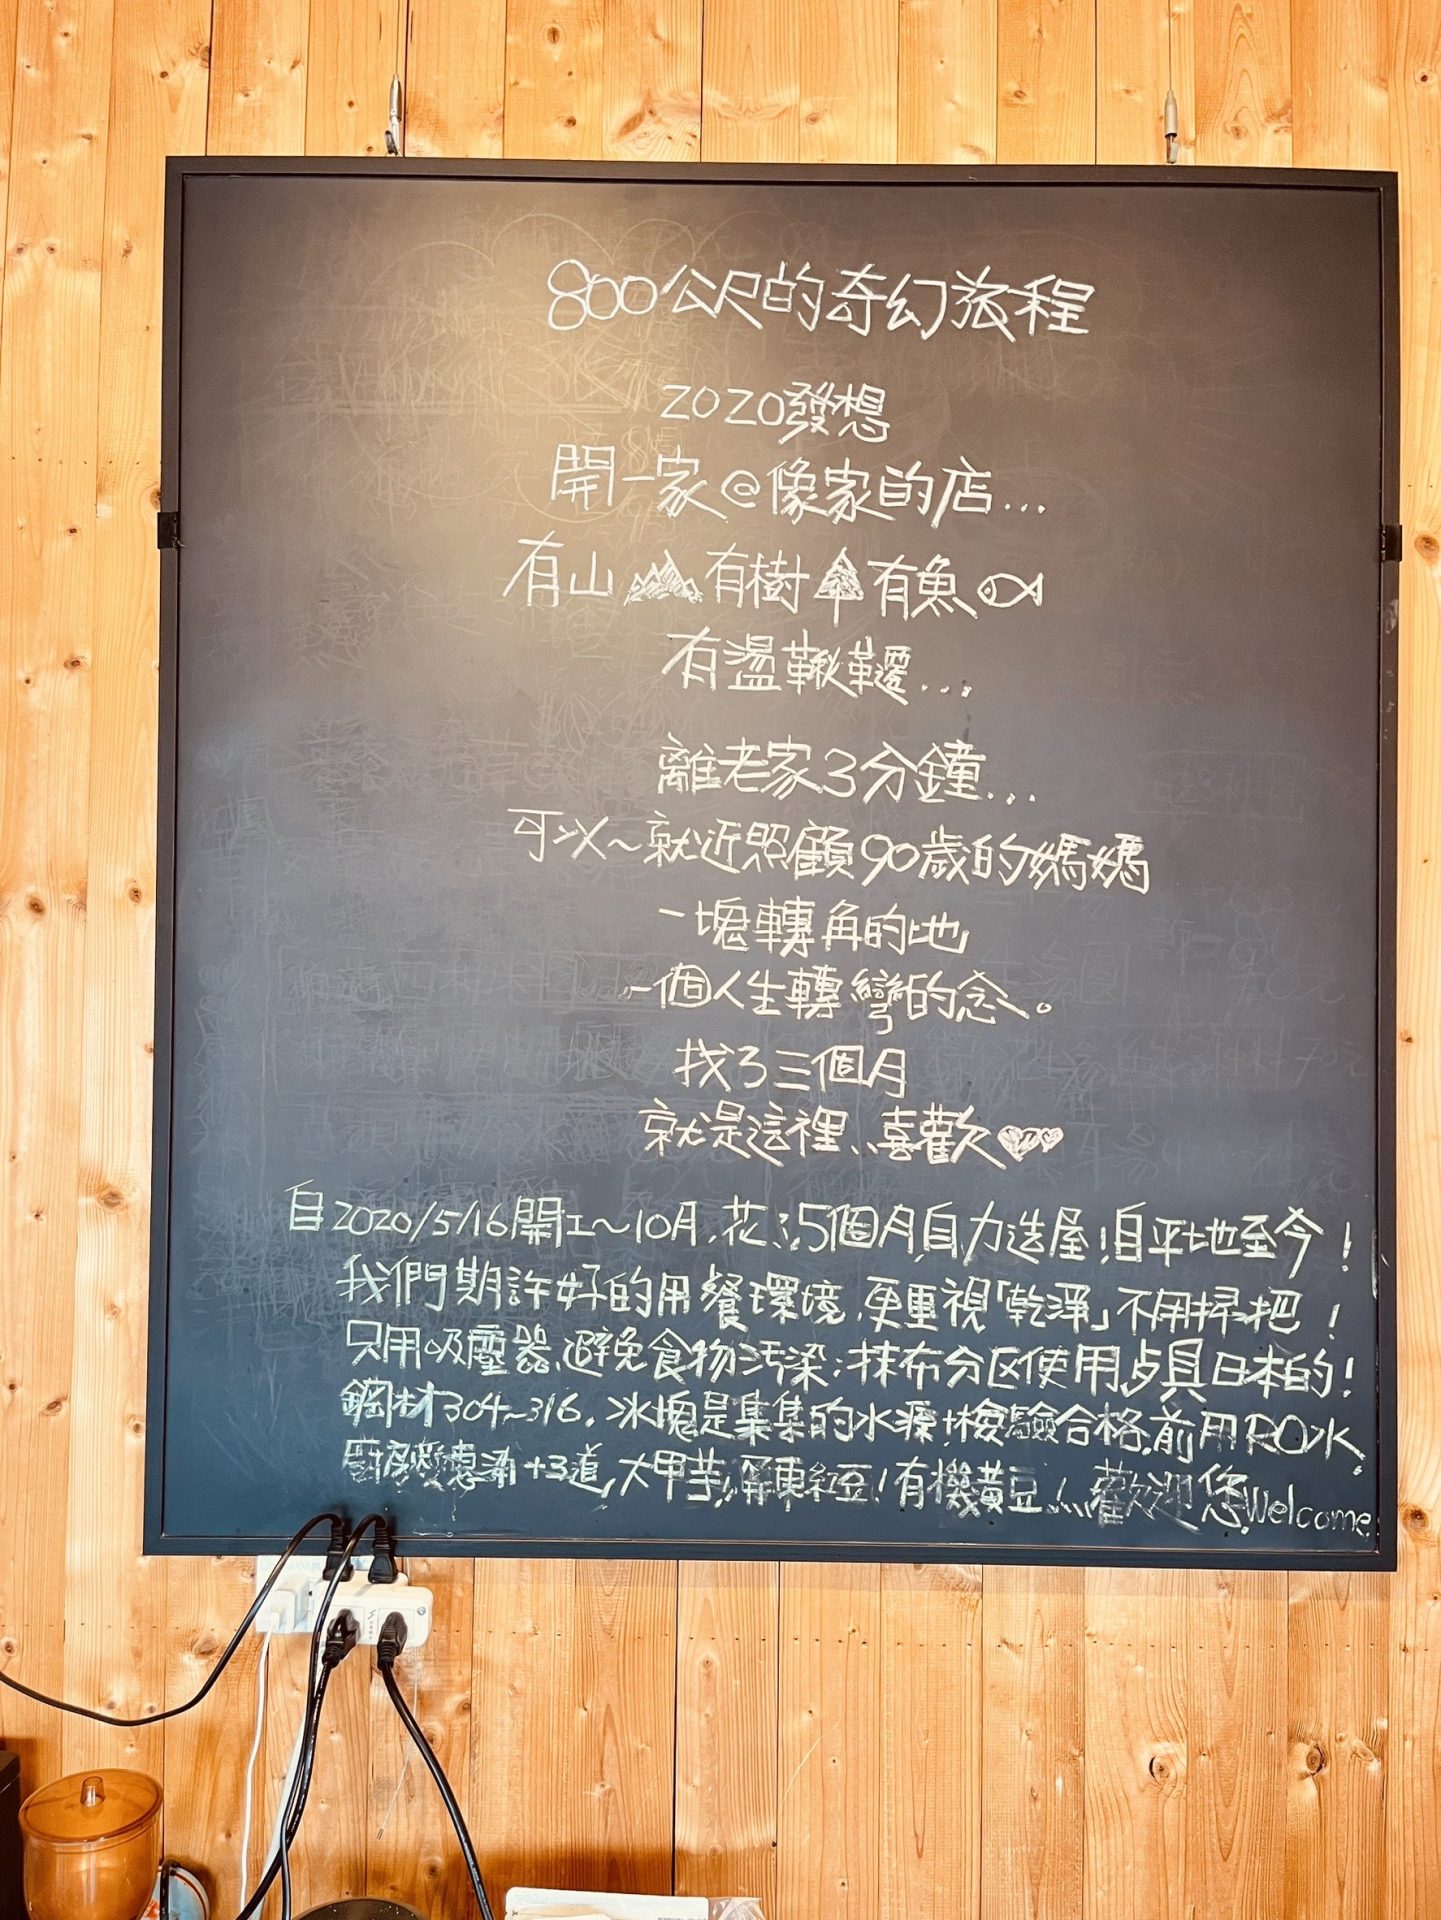 800公尺的奇幻旅程
2020發想
開一家@像家的店...
有山 有樹 有魚
有盪鞦韆...
離老家3分鐘...
可以~就近照顧90歲的媽媽
一塊轉角的地
一個人生轉彎的念。
找了三個月
就是這裡、喜歡
自2020/5/16開工~10月.花了5個月,自力造屋!自平地至今!
我們期許好的用餐環境.更重視「乾淨」不用掃把!
只用吸塵器.避免食物污染;抹布分區使用.
具日本的!
鋼材304~316.冰塊是集集的水源+檢驗合格.前用RO水
+3道,大甲芋,屏東紅豆!有機黃豆...歡迎您.Welcome